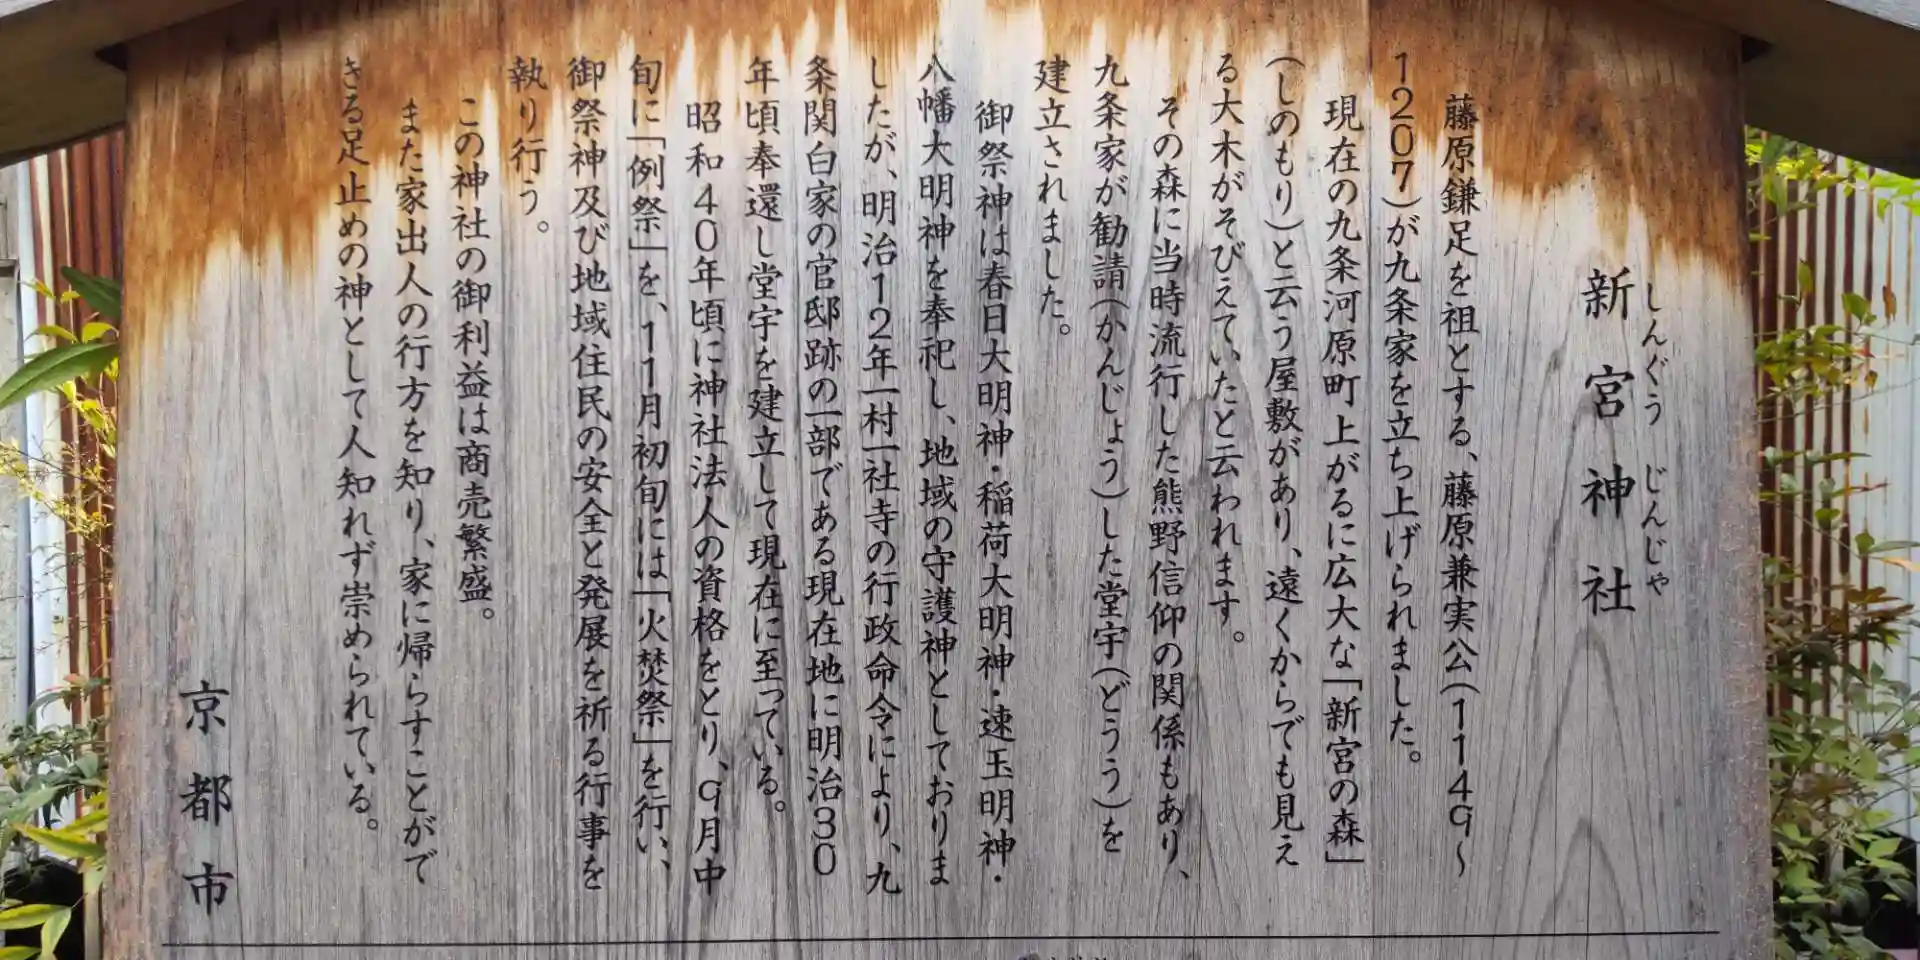 しんぐう じんじゃ
新宮神社
藤原鎌足を祖とする、藤原兼実公(1149～
1207)が九条家を立ち上げられました。
現在の九条河原町上がるに広大な「新宮の森」
(しのもり)と云う屋敷があり、遠くからでも見え
る大木がそびえていたと云われます。
その森に当時流行した熊野信仰の関係もあり、
九条家が勧請(かんじょう)した堂宇(どうう)を
建立されました。
御祭神は春日大明神・稲荷大明神・速玉明神・
八幡大明神を奉祀し、地域の守護神としておりま
したが、明治12年一村一社寺の行政命令により、九
条関白家の官邸跡の一部である現在地に明治30
年頃奉還し堂宇を建立して現在に至っている。
昭和40年頃に神社法人の資格をとり、9月中
旬に「例祭」を、11月初旬には「火焚祭」を行い、
御祭神及び地域住民の安全と発展を祈る行事を
執り行う。
この神社の御利益は商売繁盛。
また家出人の行方を知り、家に帰らすことがで
きる足止めの神として人知れず崇められている。
京都市